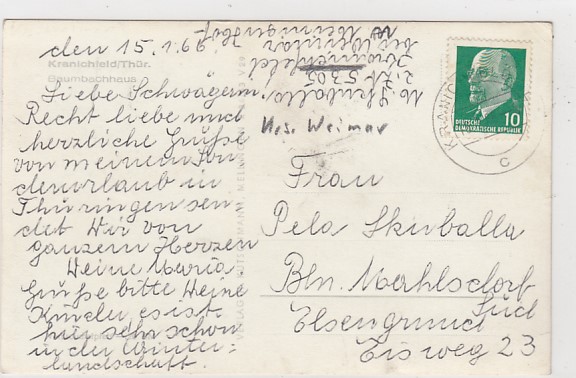 den 15.1.66
Kranichfeld/Thür.
Baumbachhaus
Liebe Schwägerin
Recht liebe und
herzliche Grüße
von meinem Son
derurlaub in
Thüringen sen
det Dir von
ganzem Herzen
Deine Maria
Grüße bitte Deine
Kinder es ist
hier sehr schön
in der Winter=
landschaft.
Kranichfeld
bei Weimar
Krs. Weimar
10
DEUTSCHE
DEMOKRATISCHE REPUBLIK
Frau
Pela Skuballa
Bln. Mahlsdorf
Süd
Elsengrund
Eisweg 23